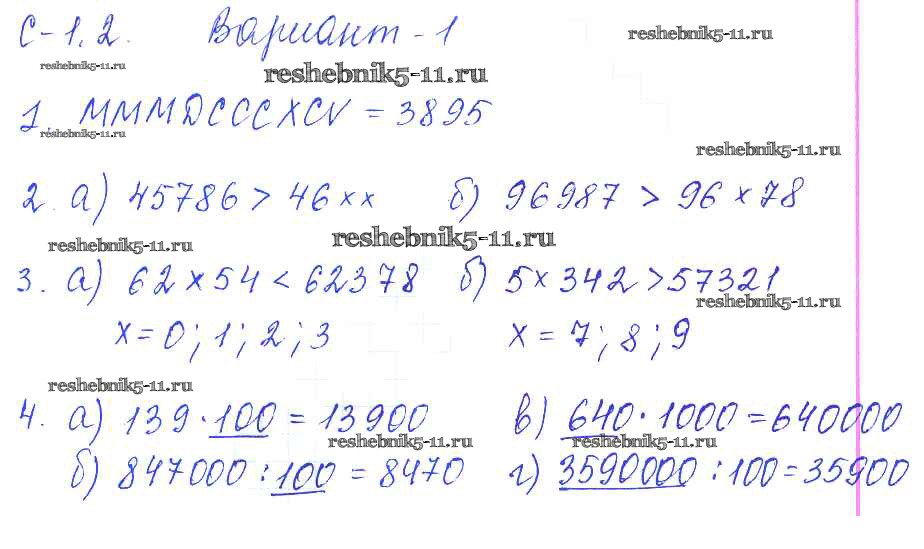 С-1.2. Вариант-1
reshebnik5-11.ru
reshebnik5-11.ru
reshebnik5-11.ru
1 MMMDCCCXCV = 3895
reshebnik5-11.ru
reshebnik5-11.ru
2. а) 45786 > 46хх б) 96987 > 96х78
reshebnik5-11.ru
reshebnik5-11.ru
3. а) 62х54 < 62378 б) 5х342 > 57321
reshebnik5-11.ru
х = 0; 1; 2; 3 х = 7; 8; 9
reshebnik5-11.ru
4. а) 139 · 100 = 13900 в) 640 · 1000 = 640000
reshebnik5-11.ru
reshebnik5-11.ru
б) 847000 : 100 = 8470 г) 3590000 : 100 = 35900